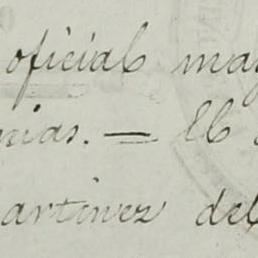 oficial may
nias. — El
artinez del